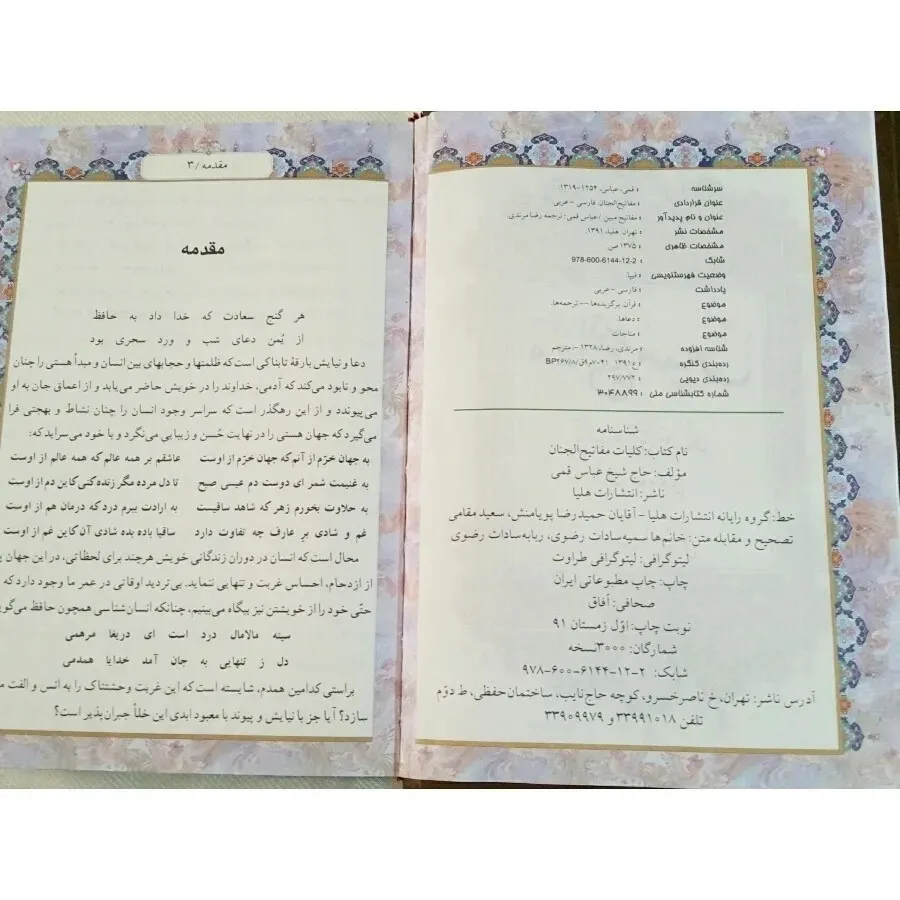 سرشناسه : قمی، عباس، ۱۲۵۴-۱۳۱۹.
عنوان قراردادی : مفاتیح‌الجنان. فارسی - عربی.
عنوان و نام پدیدآور : مفاتیح مبین / عباس قمی؛ ترجمه رضا مرندی.
مشخصات نشر : تهران، هلیا، ۱۳۹۱.
مشخصات ظاهری : ۱۳۷۵ ص.
شابک : 978-600-6144-12-2
وضعیت فهرستنویسی : فیپا.
یادداشت : فارسی - عربی
موضوع : قرآن. برگزیده‌ها -- ترجمه‌ها.
موضوع : دعاها.
موضوع : مناجات
شناسه افزوده : مرندی، رضا، ۱۳۲۸- ، مترجم
رده‌بندی کنگره : ۱۳۹۱ ۷۰۴۱م‌ق/ BP۲۶۷/۸
رده‌بندی دیویی : ۲۹۷/۷۷۲
شماره کتابشناسی ملی : ۳۰۴۸۸۹۹
شناسنامه
نام کتاب: کلیات مفاتیح‌الجنان
مؤلف: حاج شیخ عباس قمی
ناشر: انتشارات هلیا
خط: گروه رایانه انتشارات هلیا - آقایان حمیدرضا پویامنش، سعید مقامی
تصحیح و مقابله متن: خانم‌ها سمیه‌سادات رضوی، ربابه‌سادات رضوی
لیتوگرافی: لیتوگرافی طراوت
چاپ: چاپ مطبوعاتی ایران
صحافی: آفاق
نوبت چاپ: اوّل زمستان ۹۱
شمارگان: ۳۰۰۰نسخه
شابک: ۲-۱۲-۶۱۴۴-۶۰۰-۹۷۸
آدرس ناشر: تهران، خ ناصرخسرو، کوچه حاج‌نایب، ساختمان‌حفظی، ط دوّم
تلفن ۳۳۹۹۱۰۱۸ و ۳۳۹۰۹۹۷۹
مقدمه / ۳
مقدمه
هر گنج سعادت که خدا داد به حافظ
از یُمن دعای شب و ورد سحری بود
دعا و نیایش بارقهٔ تابناکی است که ظلمتها و حجابهای بین انسان و مبدأ هستی را چنان
محو و نابود می‌کند که آدمی، خداوند را در خویش حاضر می‌یابد و از اعماق جان به او
می‌پیوندد و از این رهگذر است که سراسر وجود انسان را چنان نشاط و بهجتی فرا
می‌گیرد که جهان هستی را در نهایت حُسن و زیبایی می‌نگرد و با خود می‌سراید که:
به جهان خرّم از آنم که جهان خرّم از اوست عاشقم بر همه عالم که همه عالم از اوست
به غنیمت شمر ای دوست دم عیسی صبح تا دل مرده مگر زنده کنی کاین دم از اوست
به حلاوت بخورم زهر که شاهد ساقیست به ارادت ببرم درد که درمان هم از اوست
غم و شادی بر عارف چه تفاوت دارد ساقیا باده بده شادی آن کاین غم از اوست
محال است که انسان در دوران زندگانی خویش هرچند برای لحظاتی، در این جهان
از ازدحام، احساس غربت و تنهایی ننماید. بی‌تردید اوقاتی در عمر ما وجود دارد که
حتّی خود را از خویشتن نیز بیگاه می‌بینیم، چنانکه انسان‌شناسی همچون حافظ
سینه مالامال درد است ای دریغا مرهمی
دل ز تنهایی به جان آمد خدایا همدمی
براستی کدامین همدم، شایسته است که این غربت وحشتناک را به انس و الفت
سازد؟ آیا جز با نیایش و پیوند با معبود ابدی این خلأ جبران‌پذیر است؟